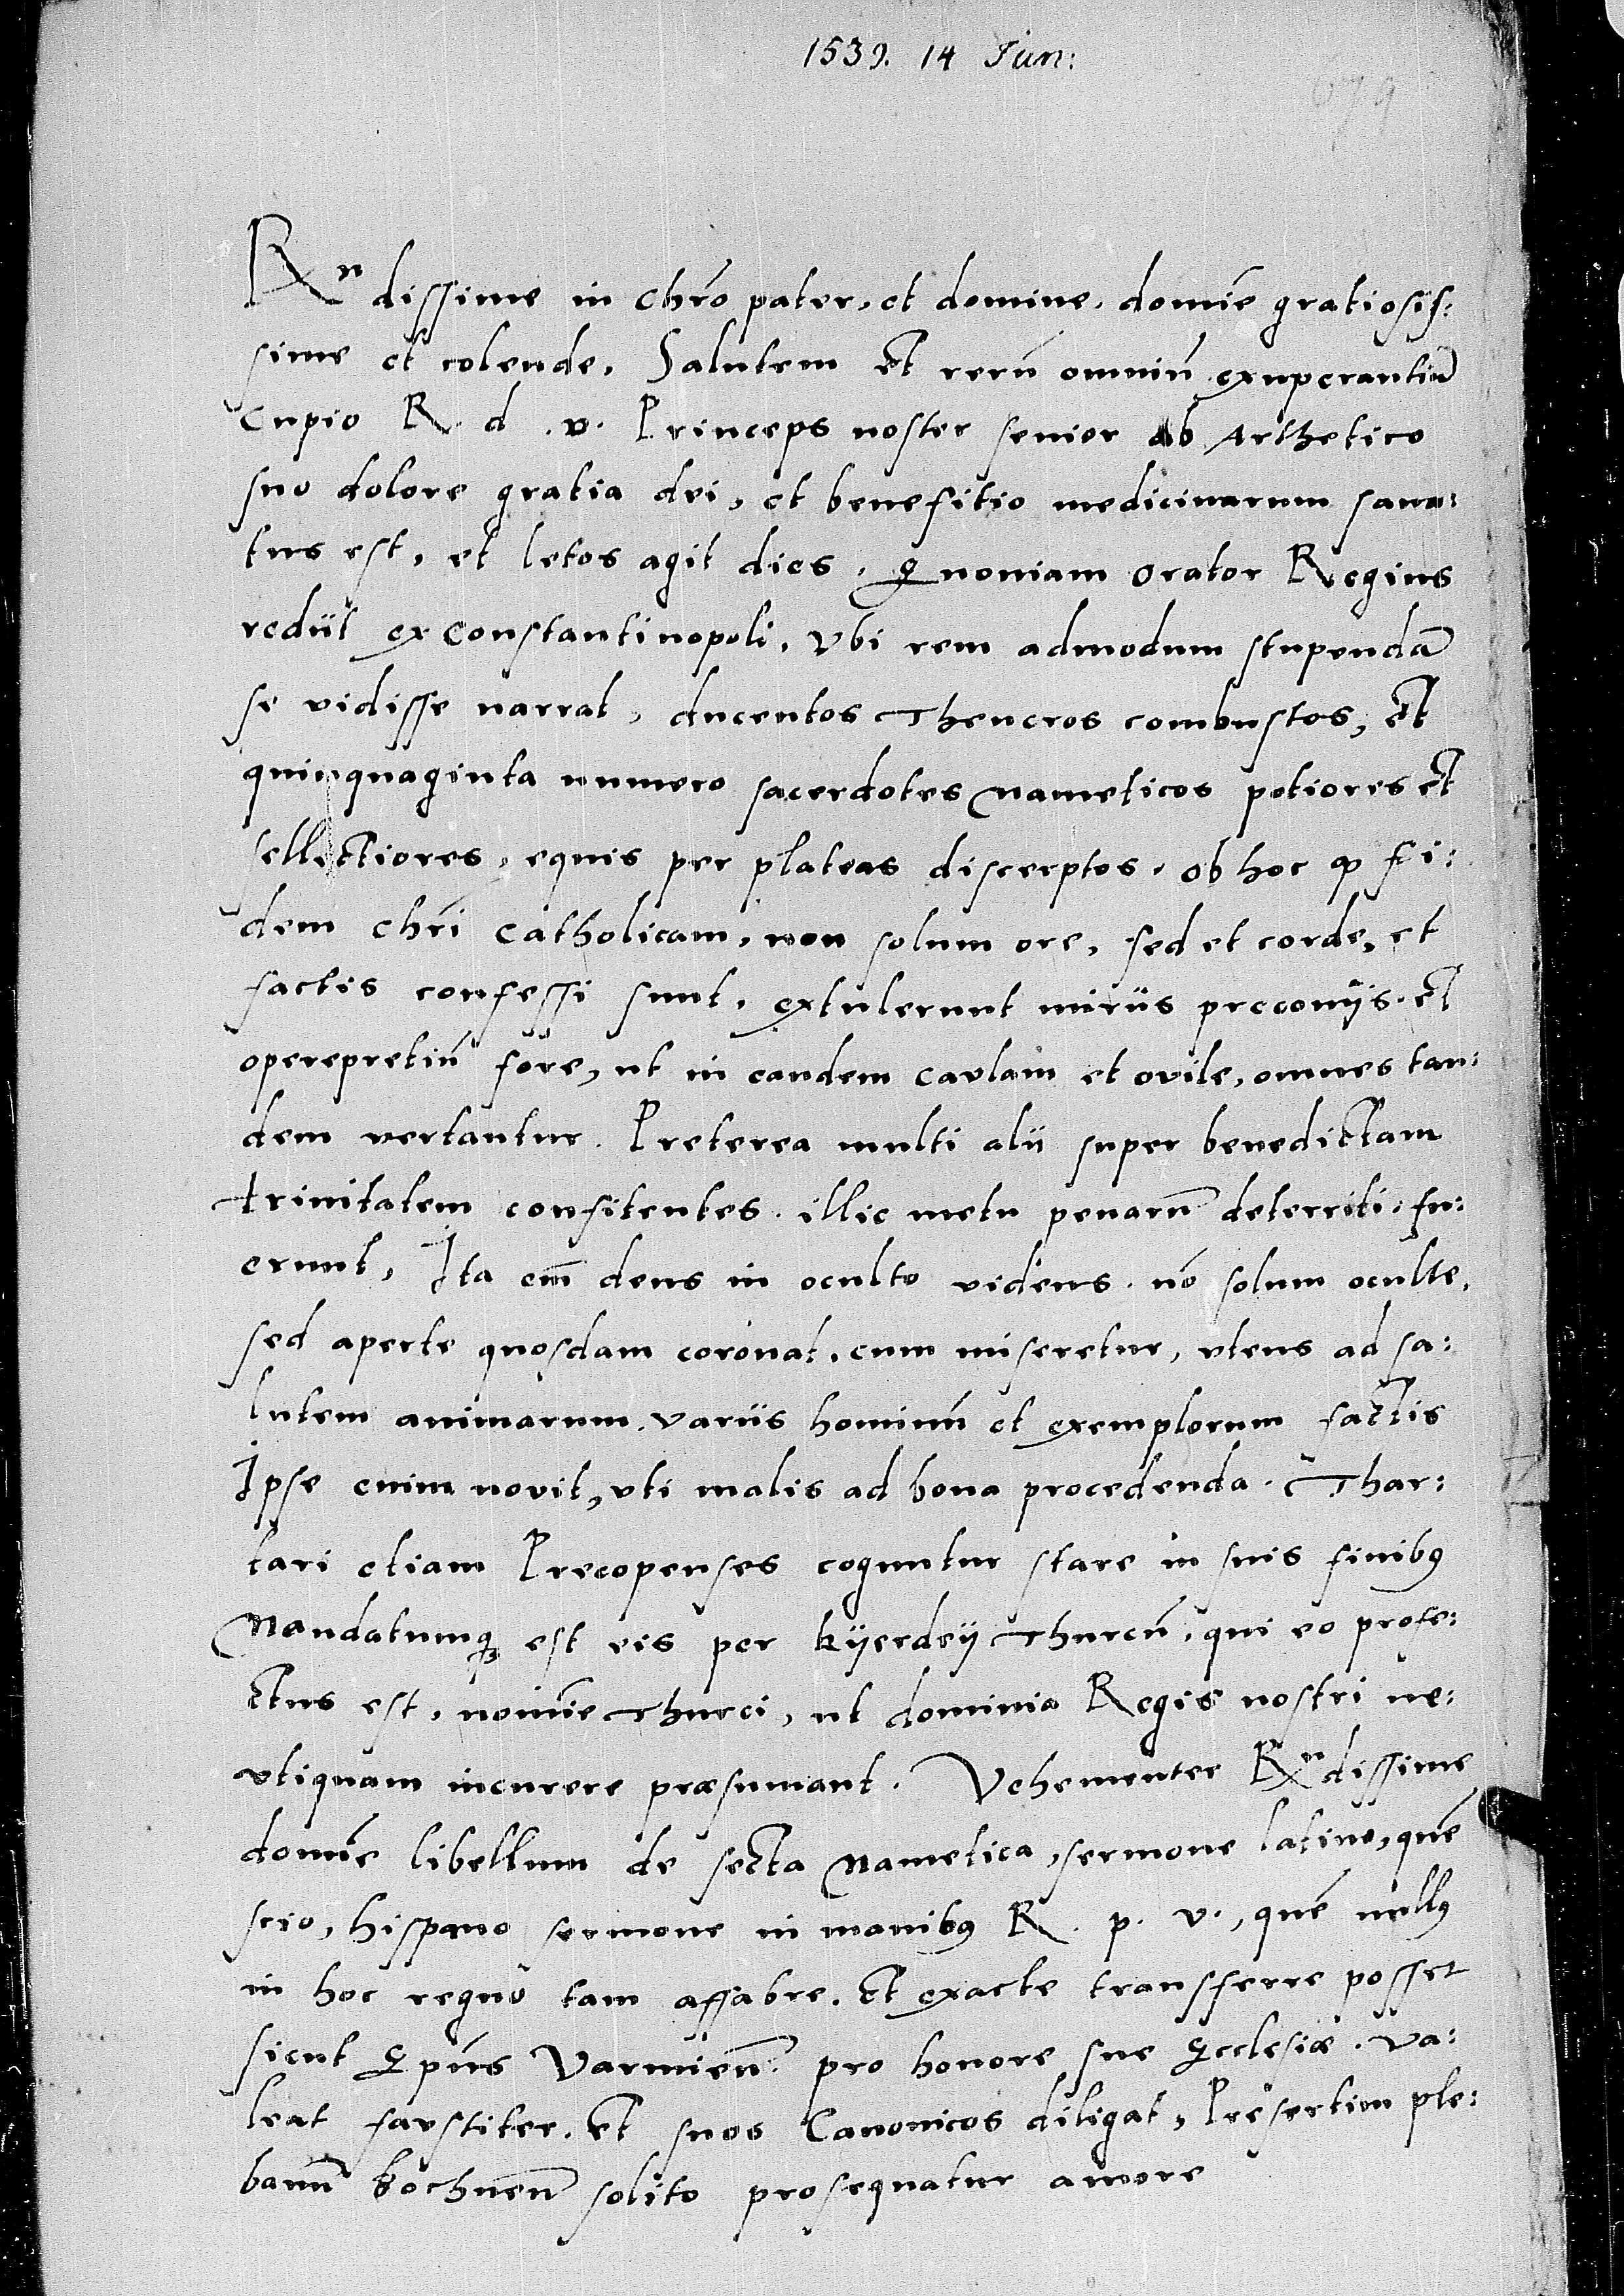 1539. 14 Jun:
679
Rndissime in chro pater, et domine, domie gratiosis:
sime et colende, Salutem et reru omniu exuperantia
Cupio R. d. v. Princeps noster senior ab Arthetico
suo dolore gratia dei, et benefitio medicinarum sana:
tus est, et letos agit dies. quoniam Orator Regius
rediit ex Constantinopoli, Vbi rem admodum stupenda
se vidisse narrat, ducentos Theucros combustos, et
quinquaginta numero sacerdotes Mameticos potiores et
sellectiores, equis per plateas discerptos, ob hoc q fi:
dem chri Catholicam, non solum ore, sed et corde, et
factis confessi sunt, extulerunt miriis preconiis. et
operepretiu fore, ut in eandem caulam et ovile, omnes tan:
dem vertantur. Preterea multi alii super benedictam
trinitatem confitentes. illic metu penaru deterriti fu:
erunt, Ita em deus in oculto videns. no solum oculte,
sed aperte quosdam coronat, cum miseretur, vtens ad sa:
lutem animarum variis hominu et exemplorum factis
Ipse enim novit, vti malis ad bona procedenda. Thar:
tari etiam Precopenses coguntur stare in suis finibus
Mandatumq est eis per kyerdeij Thurcu, qui eo profe:
ctus est, nomie Thurci, ut dominia Regis nostri ne:
vtiquam incurere præsumant. Vehementer Rndissime
domie libellum de secta Mametica, sermone latino, que
scio, hispano sermone in manibus R. p. v., que nullus
in hoc regno tam affabre. Et exacte transferre posset
sicut Epus Varmien. pro honore sue Ecclesiæ. Va:
leat faustiter. Et suos Canonicos diligat, Presertim ple:
banu Bochnen solito prosequatur amore